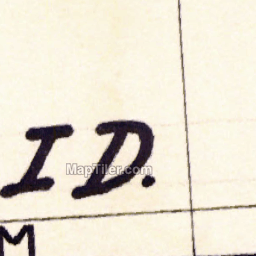 I D.
MapTiler.com
M